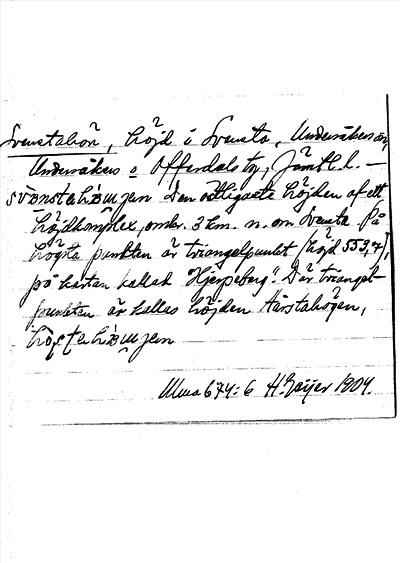 Svenstahön, höjd i Svensta, Undersåkers sn,
Undersåkers o Offerdals tg, Jämtl. l. —
Den östligaste höjden af ett
höjdkomplex, omkr. 3 km. n. om Svensta. På
högsta punkten är triangelpunkt (höjd 553,7),
på kartan kallad "Hjerpeberg". Där triangel-
punkten är kallas höjden
Uma 674: 6 H. Geijer 1909.